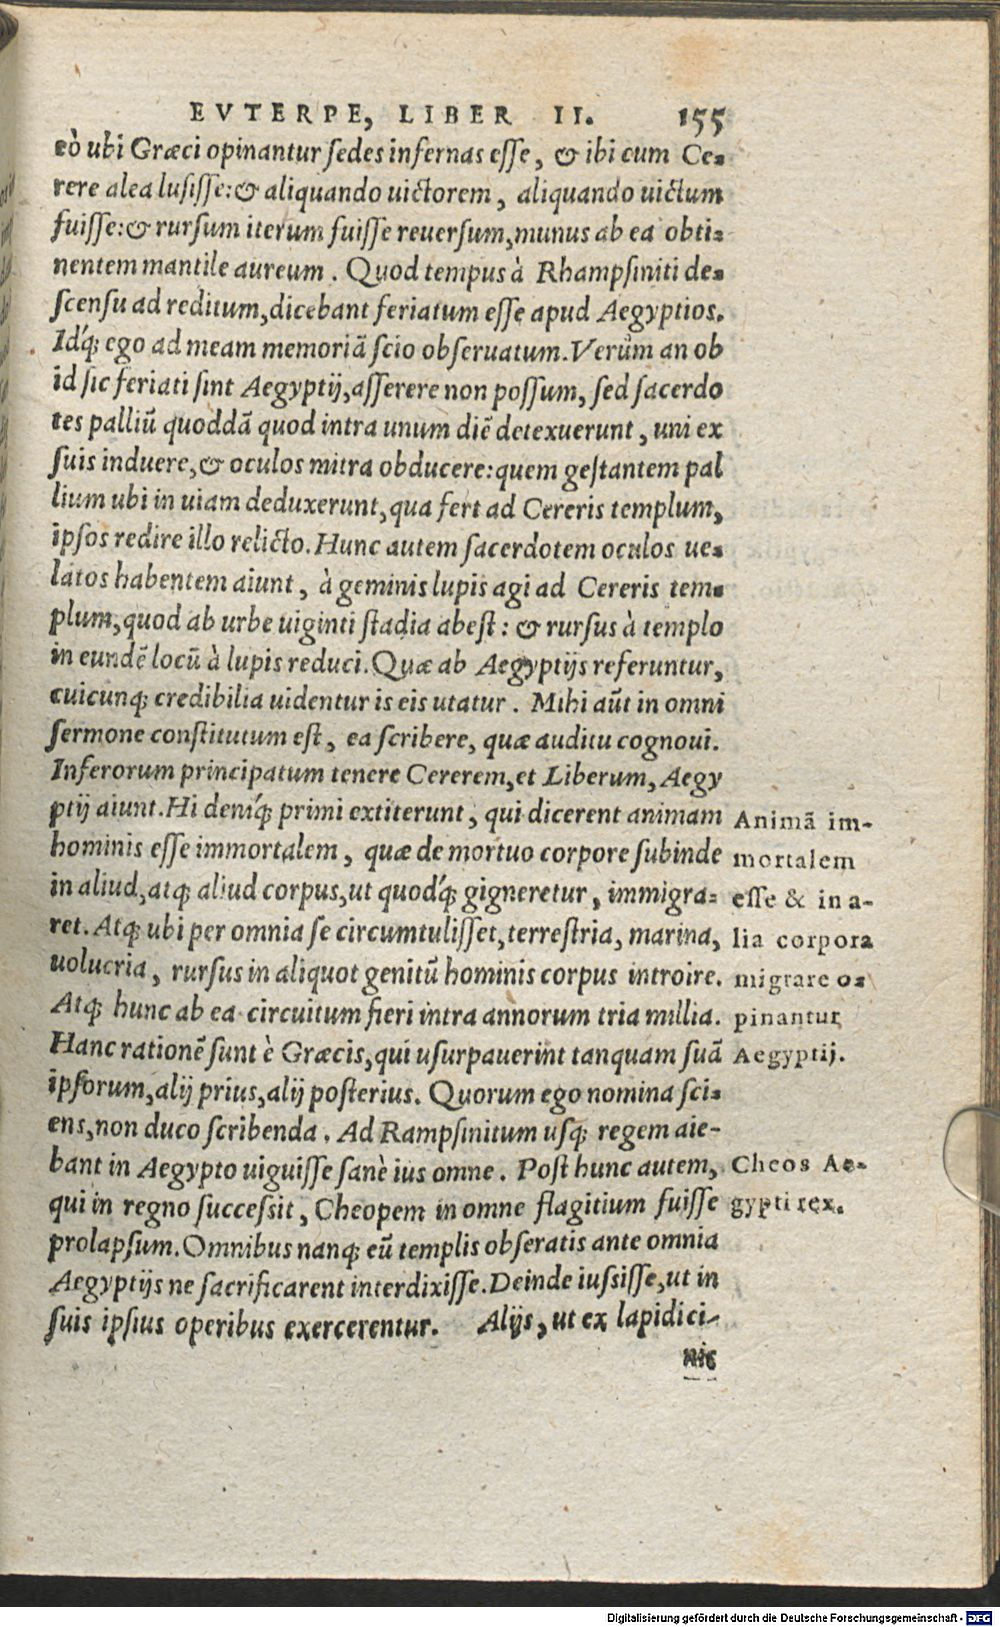 EVTERPE, LIBER II. 155
eò ubi Græci opinantur sedes infernas esse, & ibi cum Ce-
rere alea lusisse: & aliquando uictorem, aliquando uictum
fuisse: & rursum iterum fuisse reuersum, munus ab ea obti-
nentem mantile aureum. Quod tempus à Rhampsiniti de-
scensu ad reditum, dicebant feriatum esse apud Aegyptios.
Idq́; ego ad meam memoriã scio obseruatum. Verùm an ob
id sic feriati sint Aegyptij, asserere non possum, sed sacerdo
tes palliũ quoddã quod intra unum diẽ detexuerunt, uni ex
suis induere, & oculos mitra obducere: quem gestantem pal
lium ubi in uiam deduxerunt, qua fert ad Cereris templum,
ipsos redire illo relicto. Hunc autem sacerdotem oculos ue-
latos habentem aiunt, à geminis lupis agi ad Cereris tem-
plum, quod ab urbe uiginti stadia abest: & rursus à templo
in eundẽ locũ à lupis reduci. Quæ ab Aegyptijs referuntur,
cuicunq; credibilia uidentur is eis utatur. Mihi aũt in omni
sermone constitutum est, ea scribere, quæ auditu cognoui.
Inferorum principatum tenere Cererem, et Liberum, Aegy
ptij aiunt. Hi deniq́; primi extiterunt, qui dicerent animam
hominis esse immortalem, quæ de mortuo corpore subinde
in aliud, atq; aliud corpus, ut quodq́; gigneretur, immigra-
ret. Atq; ubi per omnia se circumtulisset, terrestria, marina,
uolucria, rursus in aliquot genitũ hominis corpus introire.
Atq; hunc ab ea circuitum fieri intra annorum tria millia.
Hanc rationẽ sunt è Græcis, qui usurpauerint tanquam suã
ipsorum, alij prius, alij posterius. Quorum ego nomina sci-
ens, non duco scribenda. Ad Rampsinitum usq; regem aie-
bant in Aegypto uiguisse sanè ius omne. Post hunc autem,
qui in regno successit, Cheopem in omne flagitium fuisse
prolapsum. Omnibus nanq; eũ templis obseratis ante omnia
Aegyptijs ne sacrificarent interdixisse. Deinde iussisse, ut in
suis ipsius operibus exercerentur. Alijs, ut ex lapidici-
nis
Animã im-
mortalem
esse & in a-
lia corpora
migrare o-
pinantur
Aegyptij.
Cheos Ae-
gypti rex.
Digitalisierung gefördert durch die Deutsche Forschungsgemeinschaft - DFG